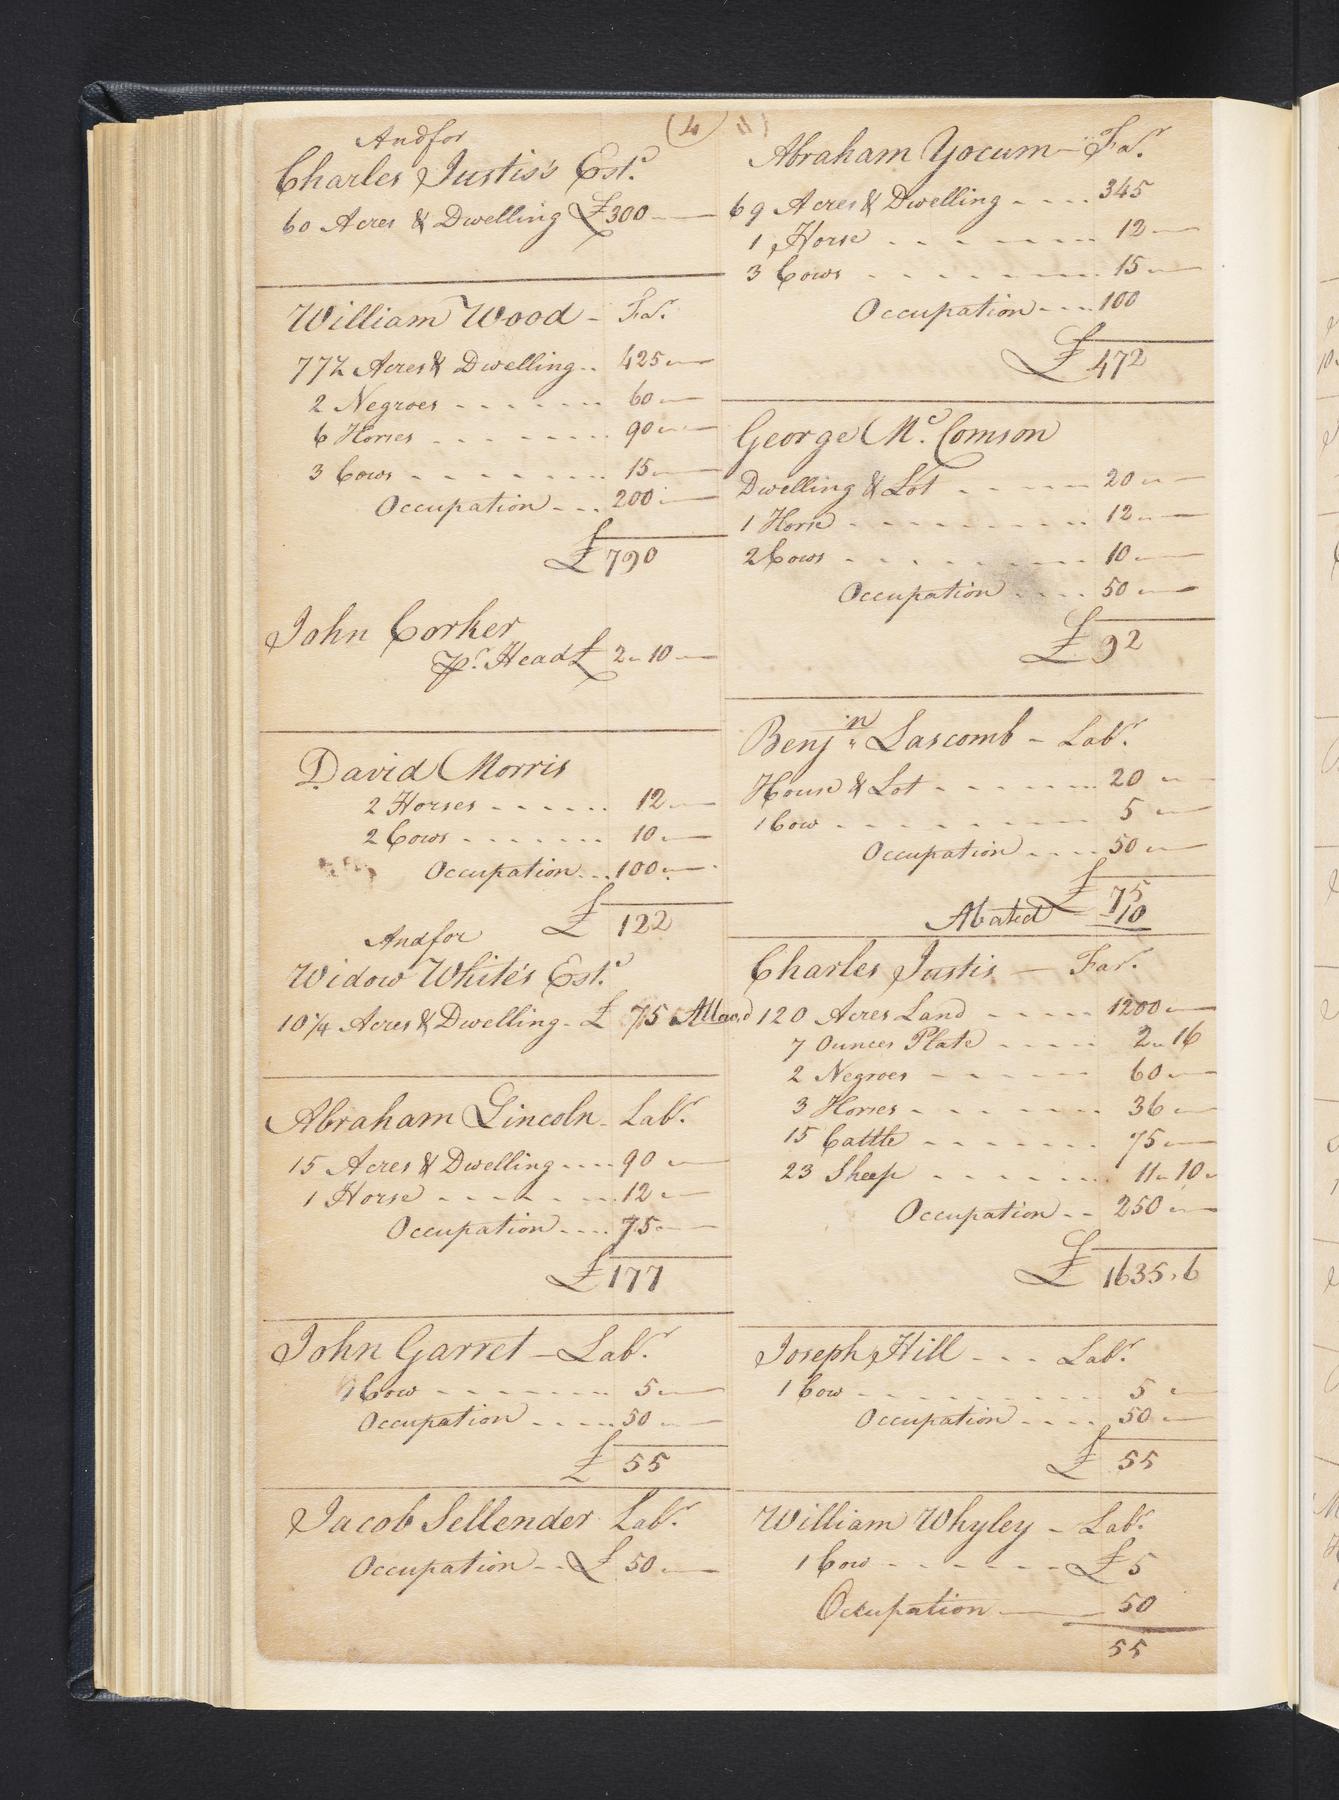 (4)
And for
Charles Justis's Est.d
60 Acres & Dwelling £300
William Wood - Far.
77½ Acres & Dwelling .. 425
2 Negroes - - - - - - 60
6 Horses - - - - - - 90
3 Cows - - - - - - 15
Occupation - - - 200
£ 790
John Corker
Pr. Head £ 2 " 10
David Morris
2 Horses - - - - - - 12
2 Cows - - - - - - 10
Occupation - - - 100
£ 122
And for
Widow White's Est.d
10¼ Acres & Dwelling - £ 75
Abraham Lincoln - Labr.
15 Acres & Dwelling - - - 90
1 Horse - - - - - - 12
Occupation - - - 75
£ 177
John Garret - Labr.
1 Cow - - - - - - 5
Occupation - - - 50
£ 55
Jacob Sellender Labr.
Occupation - - £ 50
Abraham Yocum - Far.
69 Acres & Dwelling - - - 345
1 Horse - - - - - - 12
3 Cows - - - - - - 15
Occupation - - - 100
£ 472
George Mc. Comson
Dwelling & Lot - - - - 20
1 Horse - - - - - - 12
2 Cows - - - - - - 10
Occupation - - - 50
£ 92
Benjn. Lascomb - Labr.
House & Lot - - - - - 20
1 Cow - - - - - - 5
Occupation - - - 50
£ 75
Abated 10
Charles Justis - Far.
120 Acres Land - - - - 1200
7 Ounces Plate - - - - 2 " 16
2 Negroes - - - - 60
3 Horses - - - - - 36
15 Cattle - - - - - 75
23 Sheep - - - - - 11 " 10
Occupation - - 250
£ 1635 " 6
Joseph Hill - - - Labr.
1 Cow - - - - - - 5
Occupation - - - 50
£ 55
William Whyley - Labr.
1 Cow - - - - - - £ 5
Occupation 50
55